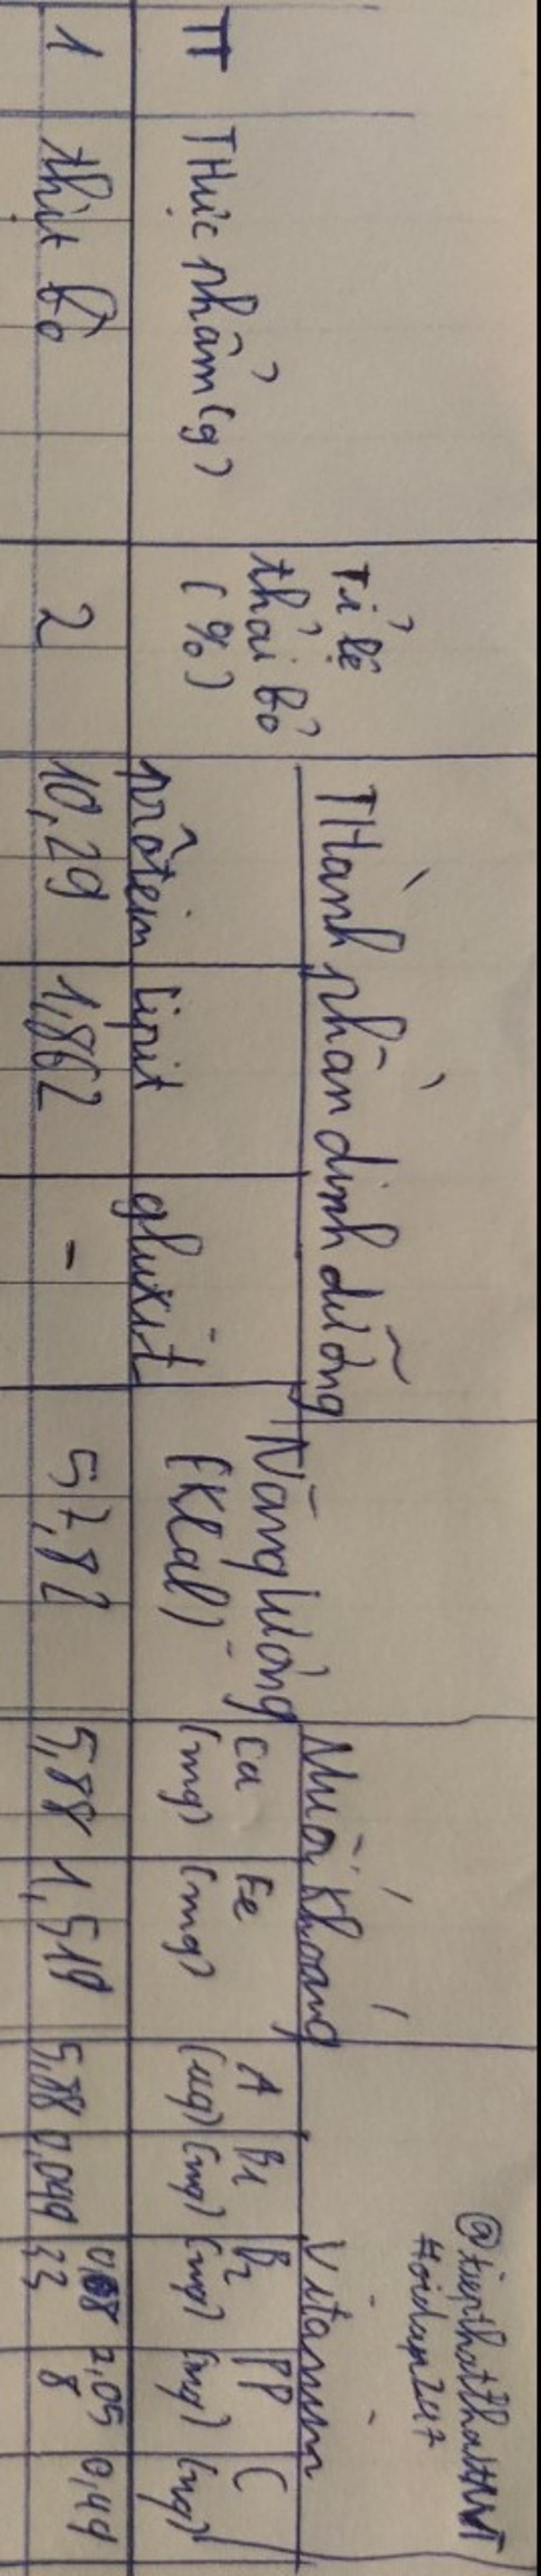 @tiepthatthatthat
#oidap247
TT
Thực phẩm (g)
Tỉ lệ
thải bỏ
(%)
Thành phần dinh dưỡng
prôtein
lipit
gluxit
Năng lượng
(Kcal)
Muối khoáng
Ca
(mg)
Fe
(mg)
Vitamin
A
(µg)
B1
(mg)
B2
(mg)
PP
(mg)
C
(mg)
1
thịt bò
2
10,29
1,862
-
57,82
5,88
1,519
5,88
0,049
0,08
33
2,05
8
0,49